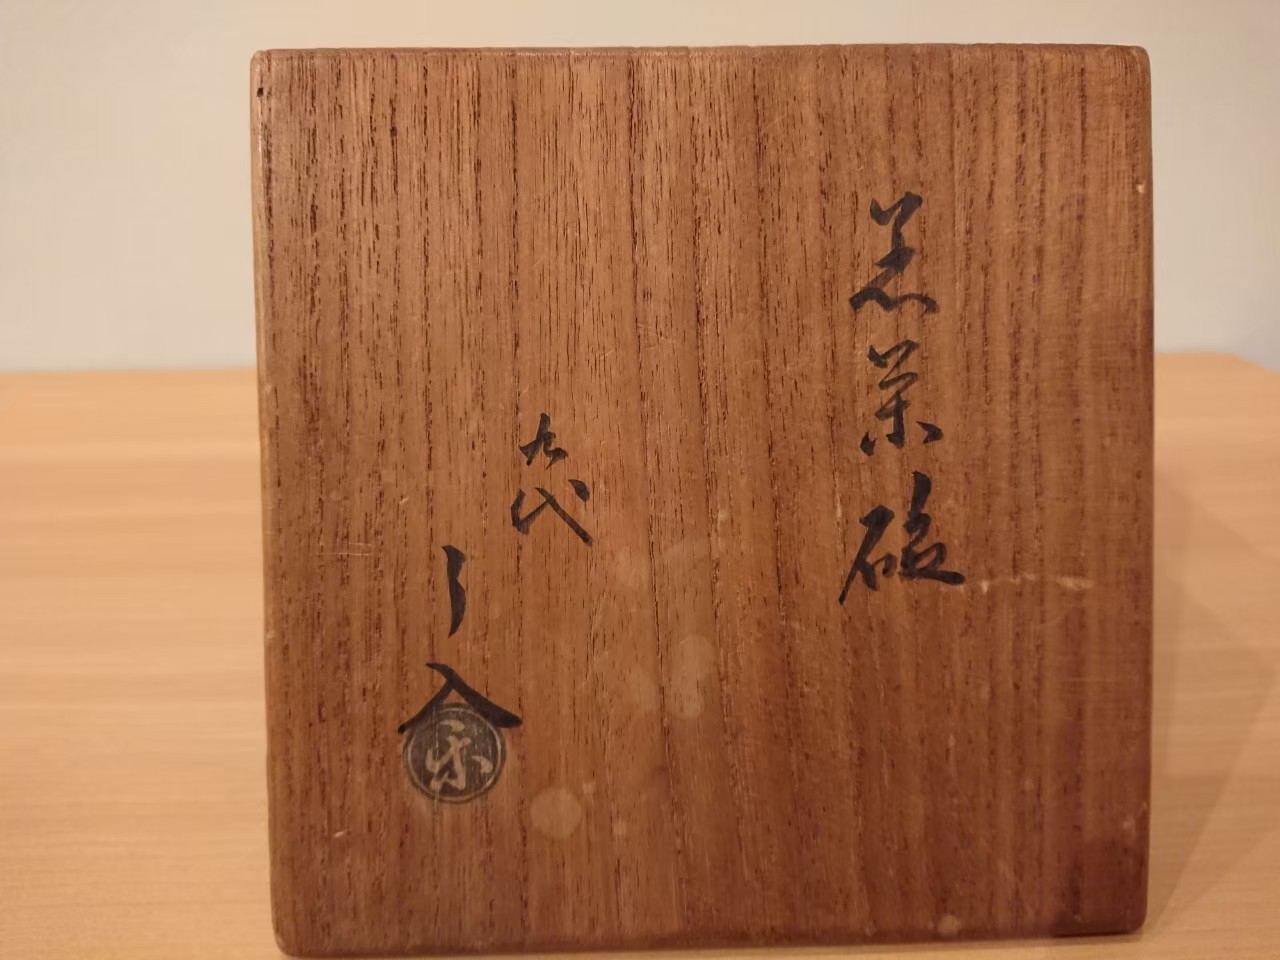 黒茶碗
九代
了入
樂